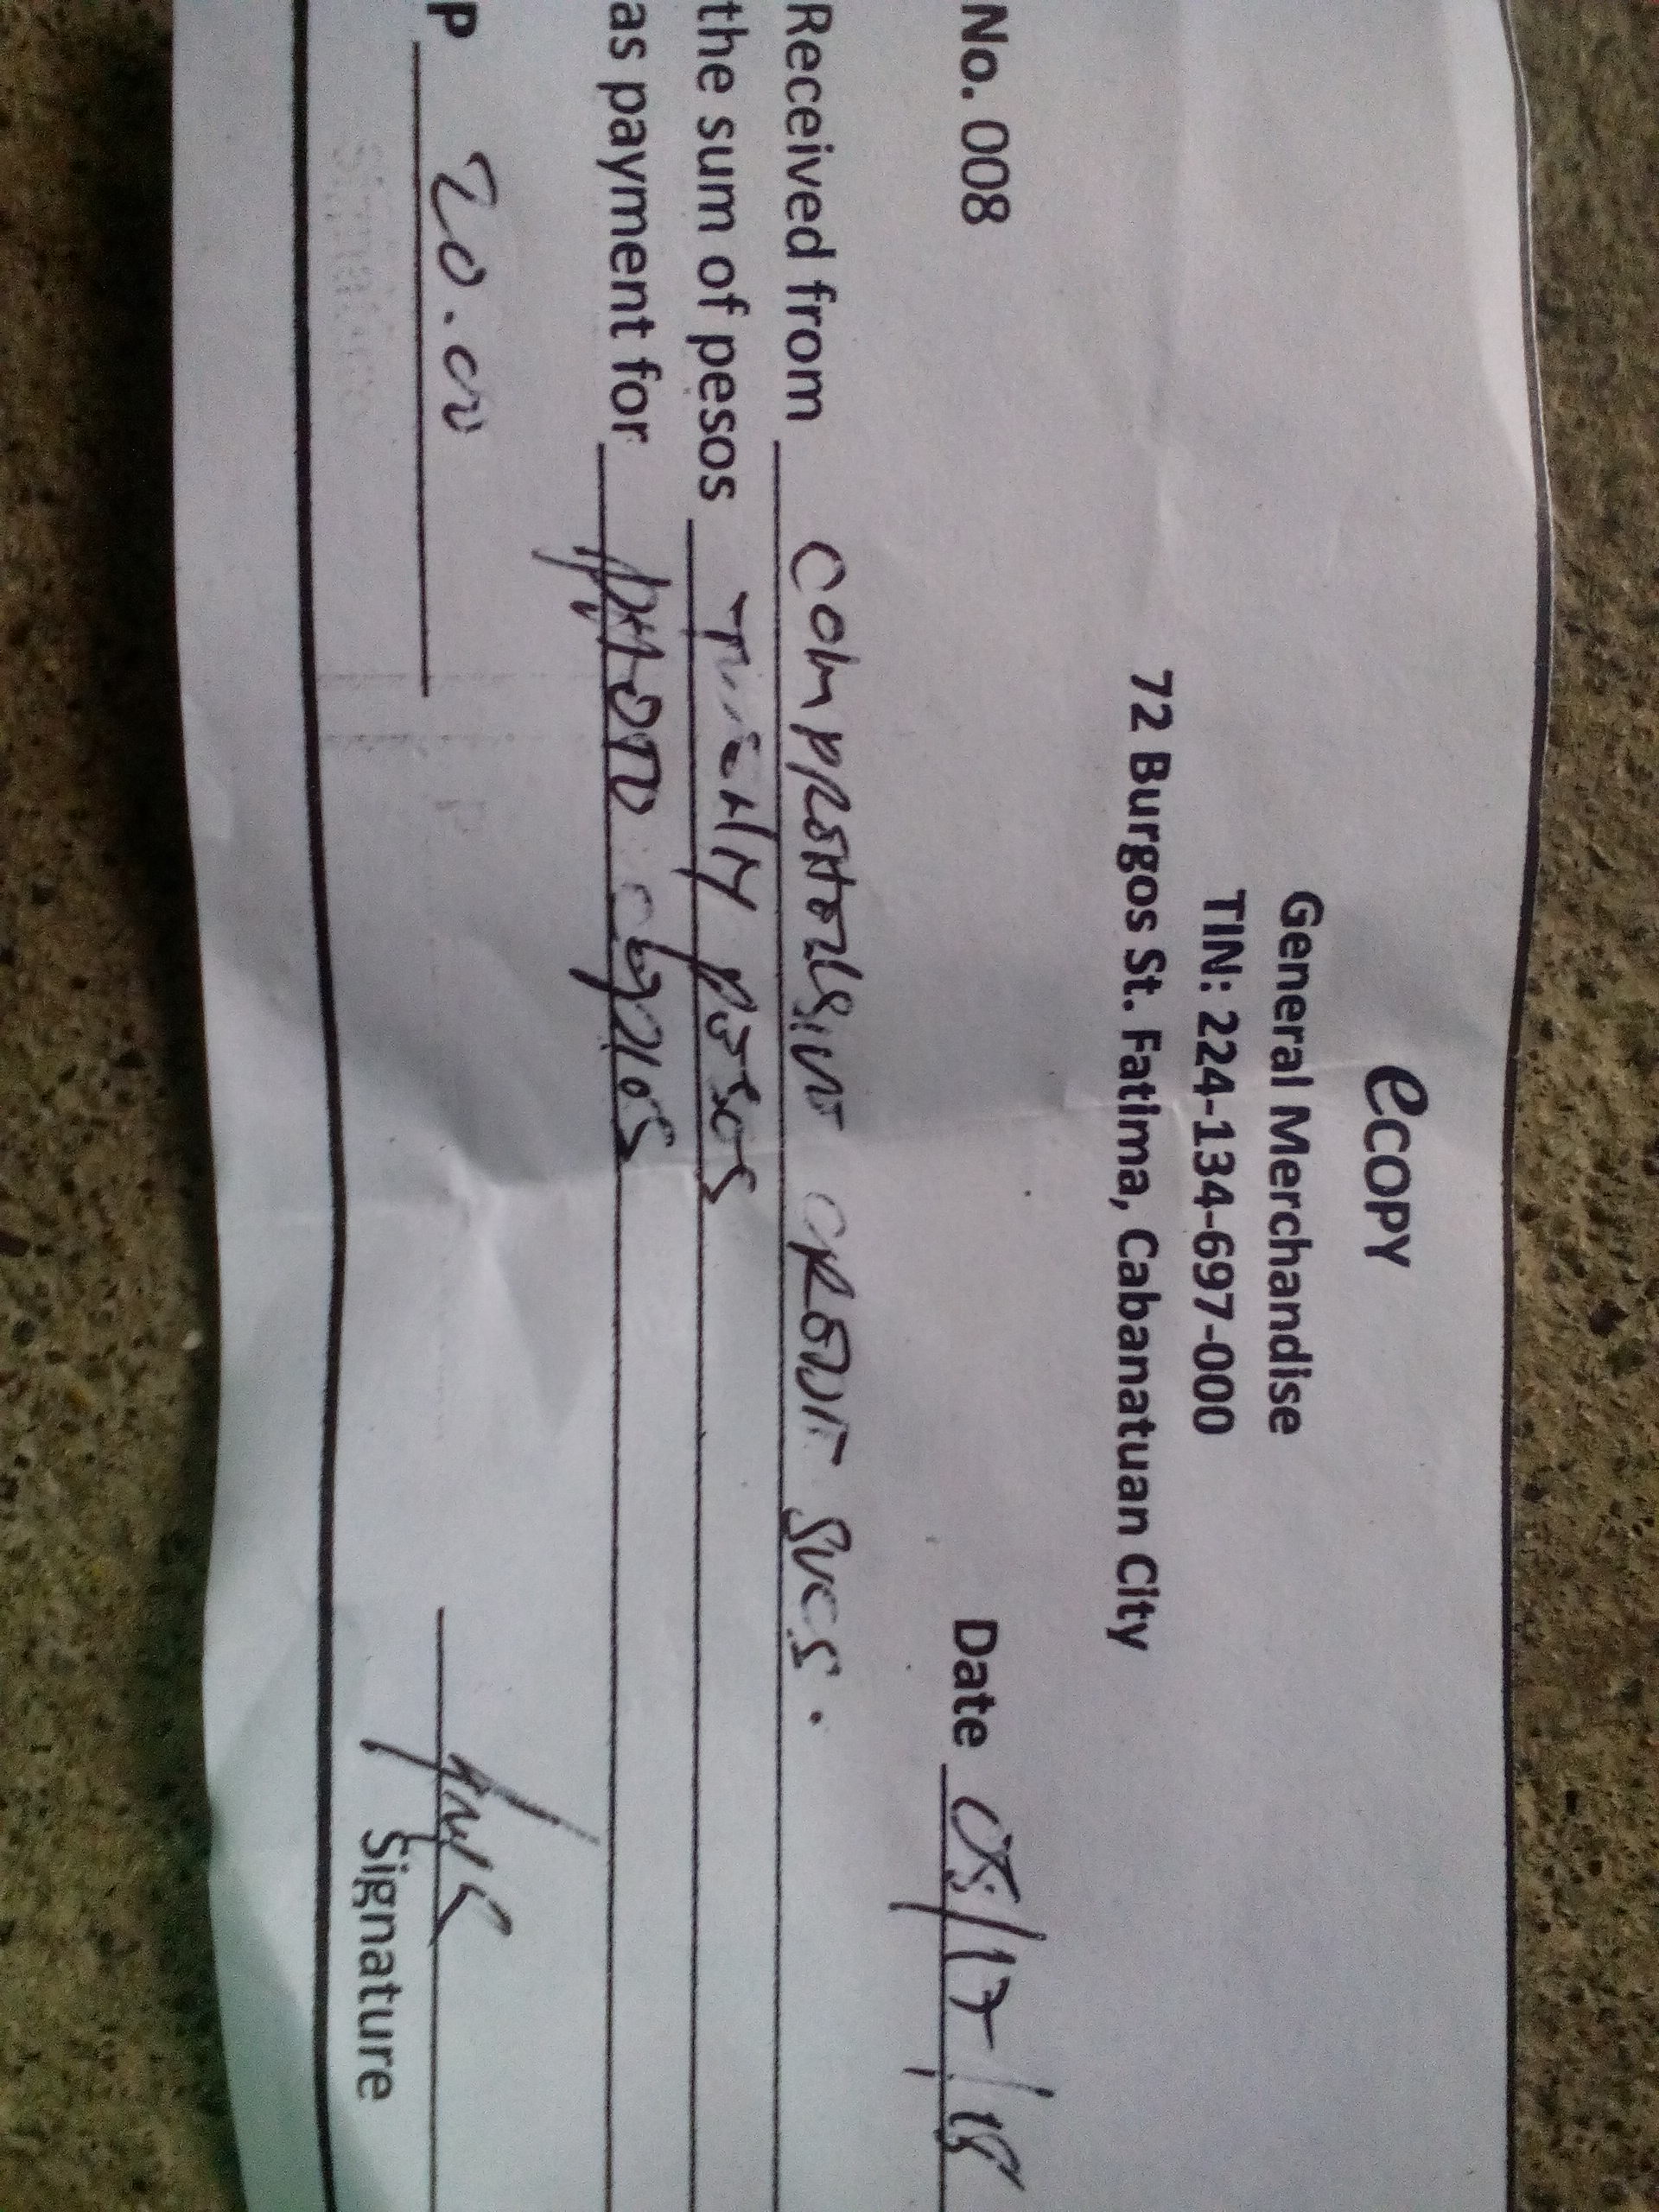 ecopy
General Merchandise
TIN: 224-134-697-000
72 Burgos St. Fatima, Cabanatuan City
No. 008 Date 05/17/18
Received from COMPREHENSIVE CREDIT SVCS.
the sum of pesos TWENTY PESOS
as payment for PHOTO COPIES
P 20.00
Signature